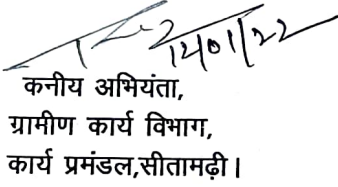 12/01/22
कनीय अभियंता,
ग्रामीण कार्य विभाग,
कार्य प्रमंडल,सीतामढ़ी।